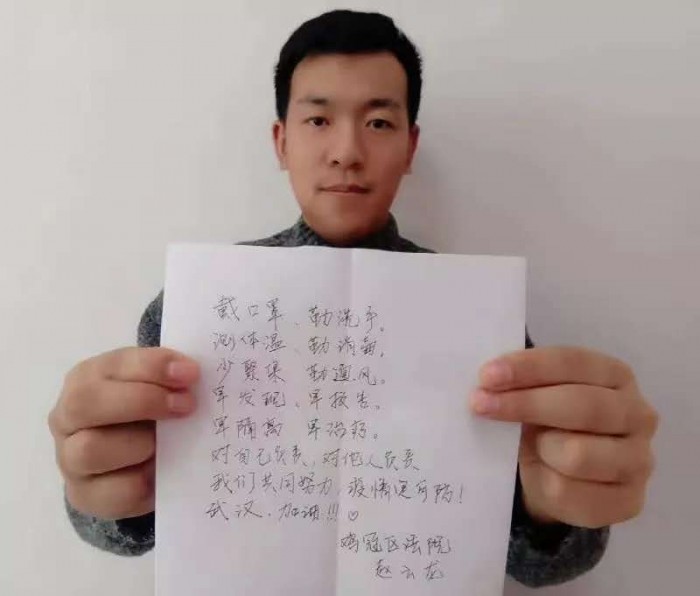 戴口罩、勤洗手。
测体温、勤消毒。
少聚集 勤通风。
早发现、早报告。
早隔离 早治疗。
对自己负责,对他人负责
我们共同努力,疫情定可防!
武汉.加油!!!♡
鸡冠区法院
赵云龙